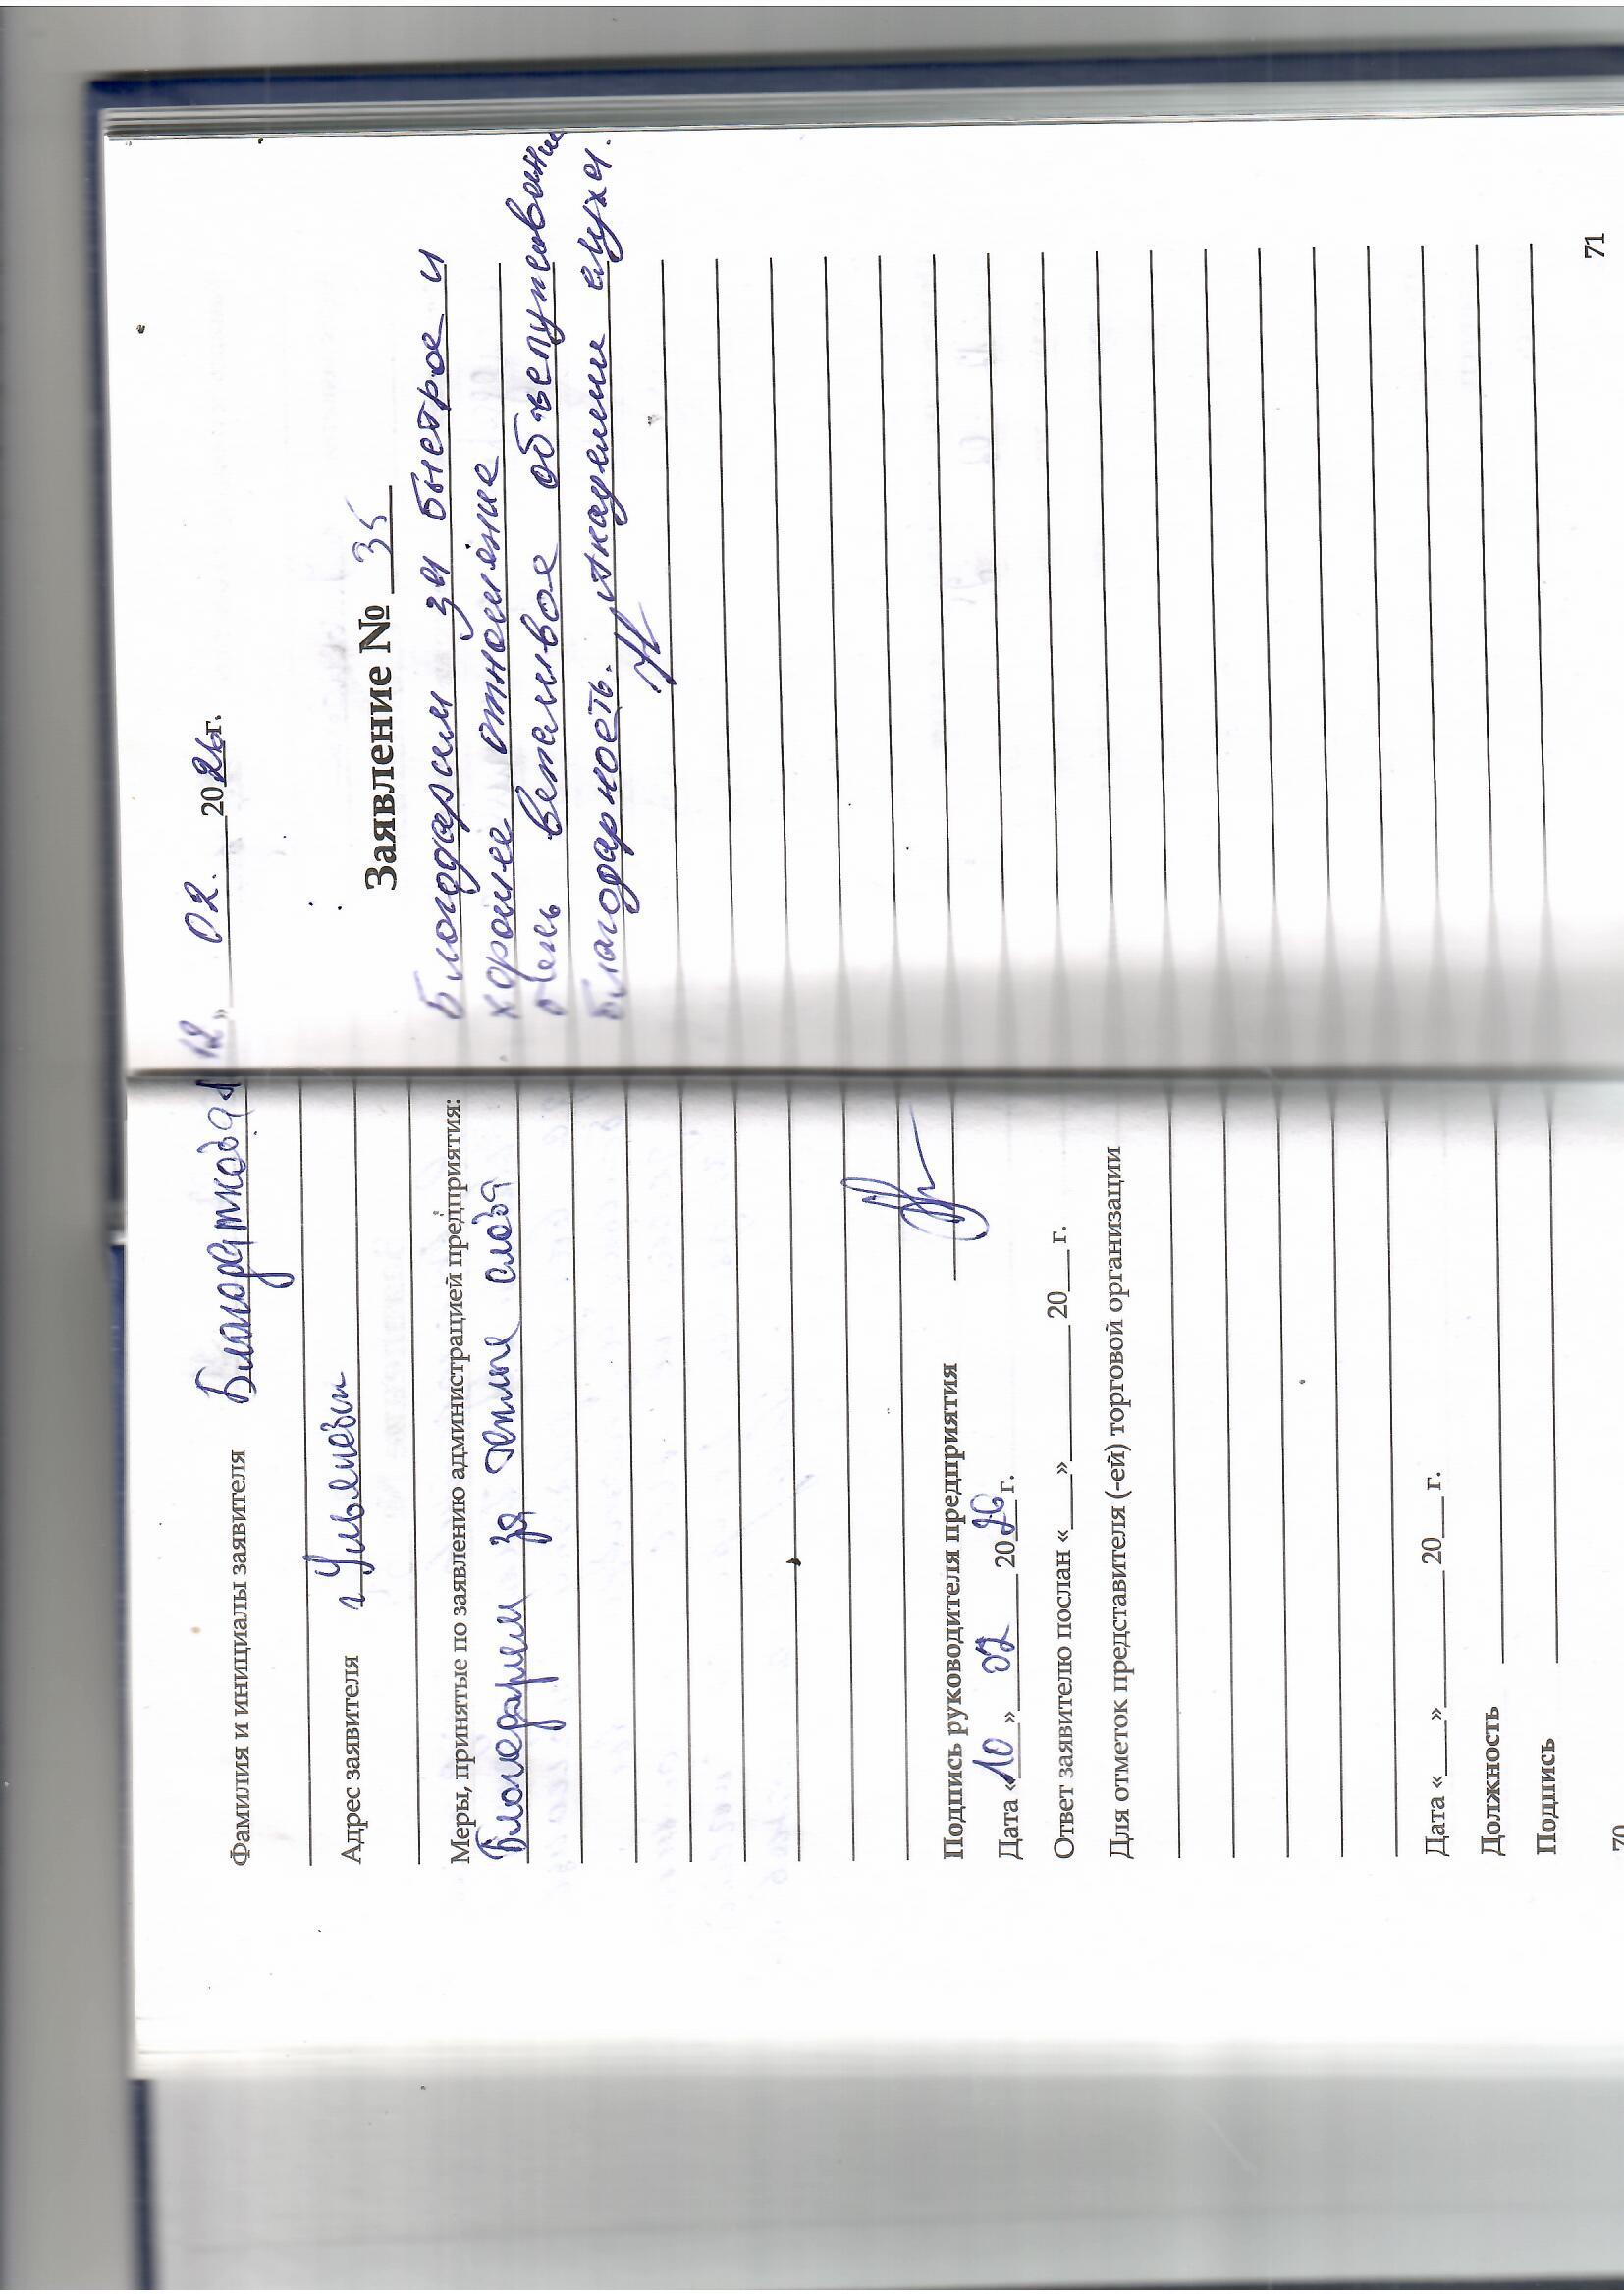 Фамилия и инициалы заявителя Благодаткова
Адрес заявителя г Ульяновск
Меры, принятые по заявлению администрацией предприятия:
Благодарим за теплые слова
Подпись руководителя предприятия
Дата «10» 02 2026г.
Ответ заявителю послан «___» ________ 20___г.
Для отметок представителя (-ей) торговой организации
Дата «___» ________ 20___г.
Должность
Подпись
70
12» 02. 2026г.
Заявление № 35
Благодарим за быстрое и
хорошее отношение
очень вежливое обслуживание
Благодарность. Академии слуха.
71